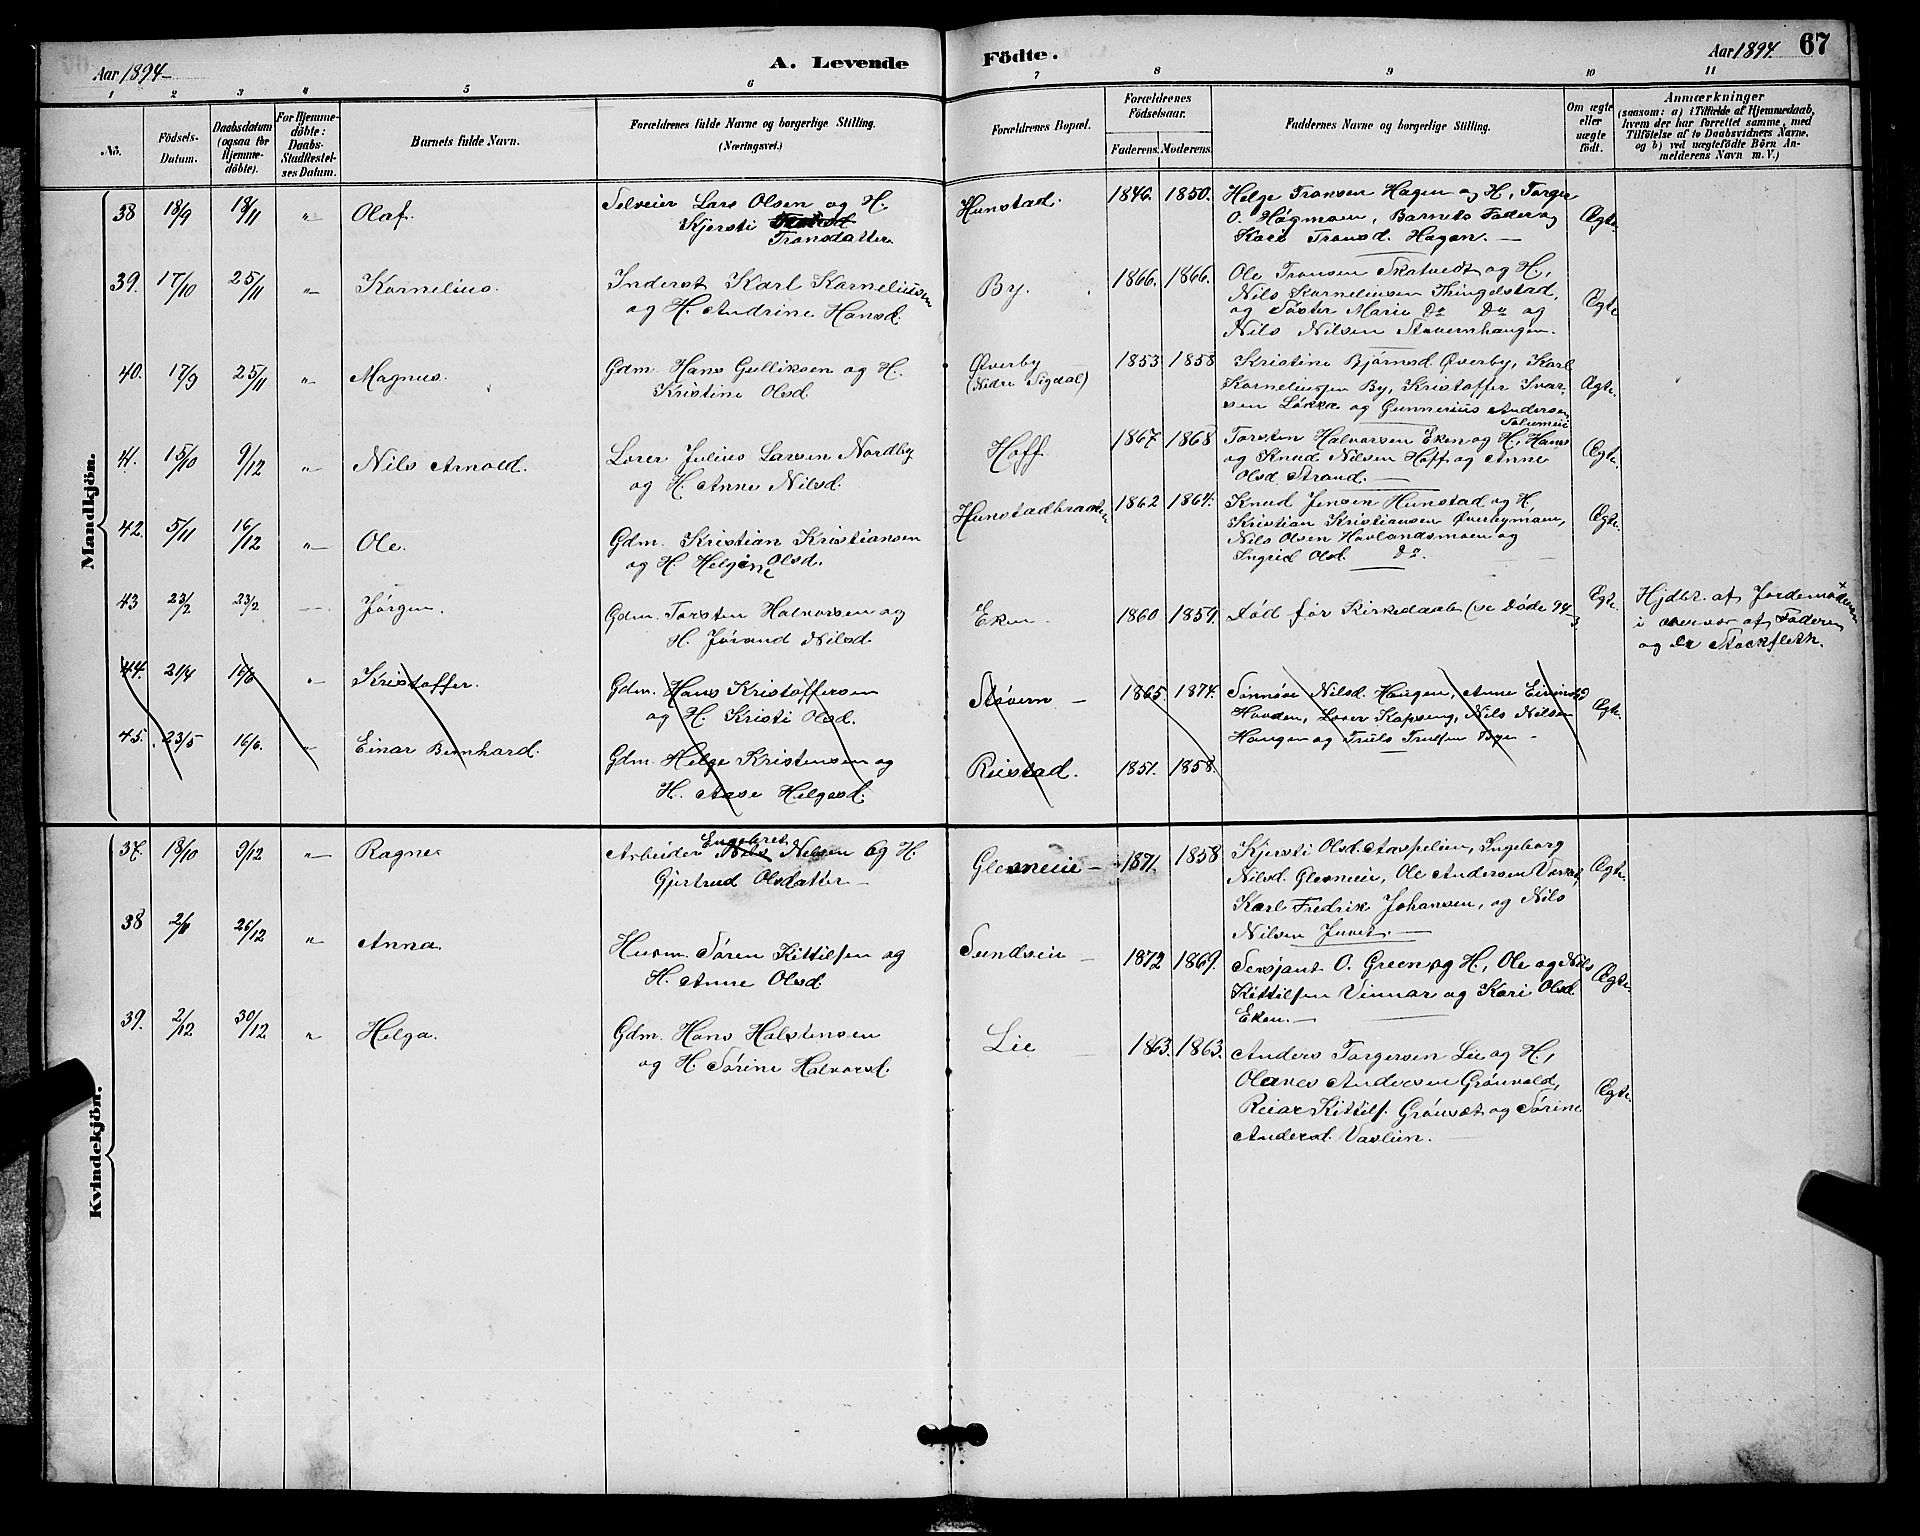 Aar 1894
A. Levende Födte.
Aar 1894. 67
1 2 3 4 5 6 7 8 9 10 11
No.
Födsels-Datum.
Daabsdatum (ogsaa for Hjemmedøbte).
For Hjemmedøbte: Daabs-Stadfæstelses Datum.
Barnets fulde Navn.
Forældrenes fulde Navne og borgerlige Stilling.
(Næringsvei.)
Forældrenes Bopæl.
Forældrenes Födselsaar.
Faderens. Moderens.
Faddernes Navne og borgerlige Stilling.
Om ægte eller uægte födt.
Anmærkninger
(saasom: a) i Tilfælde af Hjemmedaab, hvem der har forrettet samme, med Tilföielse af to Daabsvidners Navne, og b) ved uægtefödte Börn Anmelderens Navn m. V.)
Mandkjön.
38 18/9 18/11 " Olaf.
Selveier Lars Olsen og H.
Kjersti
Transdatter
Hunstad. 1846. 1850.
Helge Transen Hagen og H, Torger
O. Høgmoen, Barnets Fader og
Kari Transd. Hagen. —
Ægte
39. 17/10 25/11 " Kornelius.
Inderst Karl Korneliussen
og H. Andrine Hansd.
By. 1866. 1866.
Ole Transen Skatvedt og H,
Nils Korneliusen Thingelstad,
og Søster Marie Do Do og
Nils Nilsen Stovernhaugen.
Ægte
40. 17/9 25/11 " Magnus.
Gdm. Hans Gulliksen og H.
Kristine Olsd.
Øverby
(Nidre Sigdal) 1853 1858
Kristine Bjørnsd Øverby, Karl
Korneliussen By, Kristoffer Ivar-
sen Løkka og Gunnerius Andersen
Ægte.
41. 15/10 9/12 " Nils Arnold.
Lærer Julius Larsen Nordby
og H. Anne Nilsd.
Hoff. 1867 1868
Torsten Halvorsen Eken og H, Hans
og Knud Nilsen Hoff og Anne
Olsd Strand. —
Ægte.
42. 5/11 16/12 " Ole.
Gdm. Kristian Kristiansen
og H. Helgine Olsd.
Hunstadbraaten 1862 1864.
Knud Jensen Hunstad og H,
Kristian Kristiansen Øverbymoen,
Nils Olsen Hovlandsmoen og
Ingrid Olsd. Do.
Ægte.
43 23/2 23/2 Jørgen.
Gdm. Torsten Halvorsen og
H. Jørand Nilsd.
Eken. 1860 1859.
Død før Kirkedaab (se Døde 94
Ægte.
Hjdbt. af Jordemoderen
i overvær af Faderen
og Dr Stockfleth.
44. 21/4 16/6 " Kristoffer.
Gdm. Hans Kristoffersen
og H. Kristi Olsd.
Støvern — 1865. 1874.
Sønnøve Nilsd. Haugen, Anne Eivindsd
Hovden, Lærer Kopseng, Nils Nilsen
Haugen og Truls Trulsen Bye —
Ægte.
45. 23/5 16/6. " Einar Bernhard.
Gdm. Helge Kristensen og
H. Aase Helgesd.
Reistad. 1851. 1858.
Kvindekjön.
37. 18/10 9/12 " Ragne
Engebret
Arbeider Nils Nilsen og H.
Gjertrud Olsdatter —
Glesneeie — 1871. 1858
Kjersti Olsd. Aaspeleien, Ingeborg
Nilsd. Glesneeie, Ole Andersen
Karl Fredrik Johansen, og Nils
Nilsen Juvet. —
Ægte.
38 2/6 26/12 " Anna.
Husm. Søren Kittilsen og
H. Anne Olsd.
Sundseie — 1872 1869.
Sersjant O. Green og H, Ole og Nils
Kittilsen Vinnar og Kari Olsd.
Eken. —
Ægte.
39. 2/12 30/12 " Helga.
Gdm. Hans Halstensen
og H. Sørine Halvorsd.
Lie — 1863. 1863.
Anders Torgersen Lie og H,
Olaves Andersen Grønvold,
Reiar Kittils. Grønset og Sørine
Andersd. Vaslien.
Ægte.